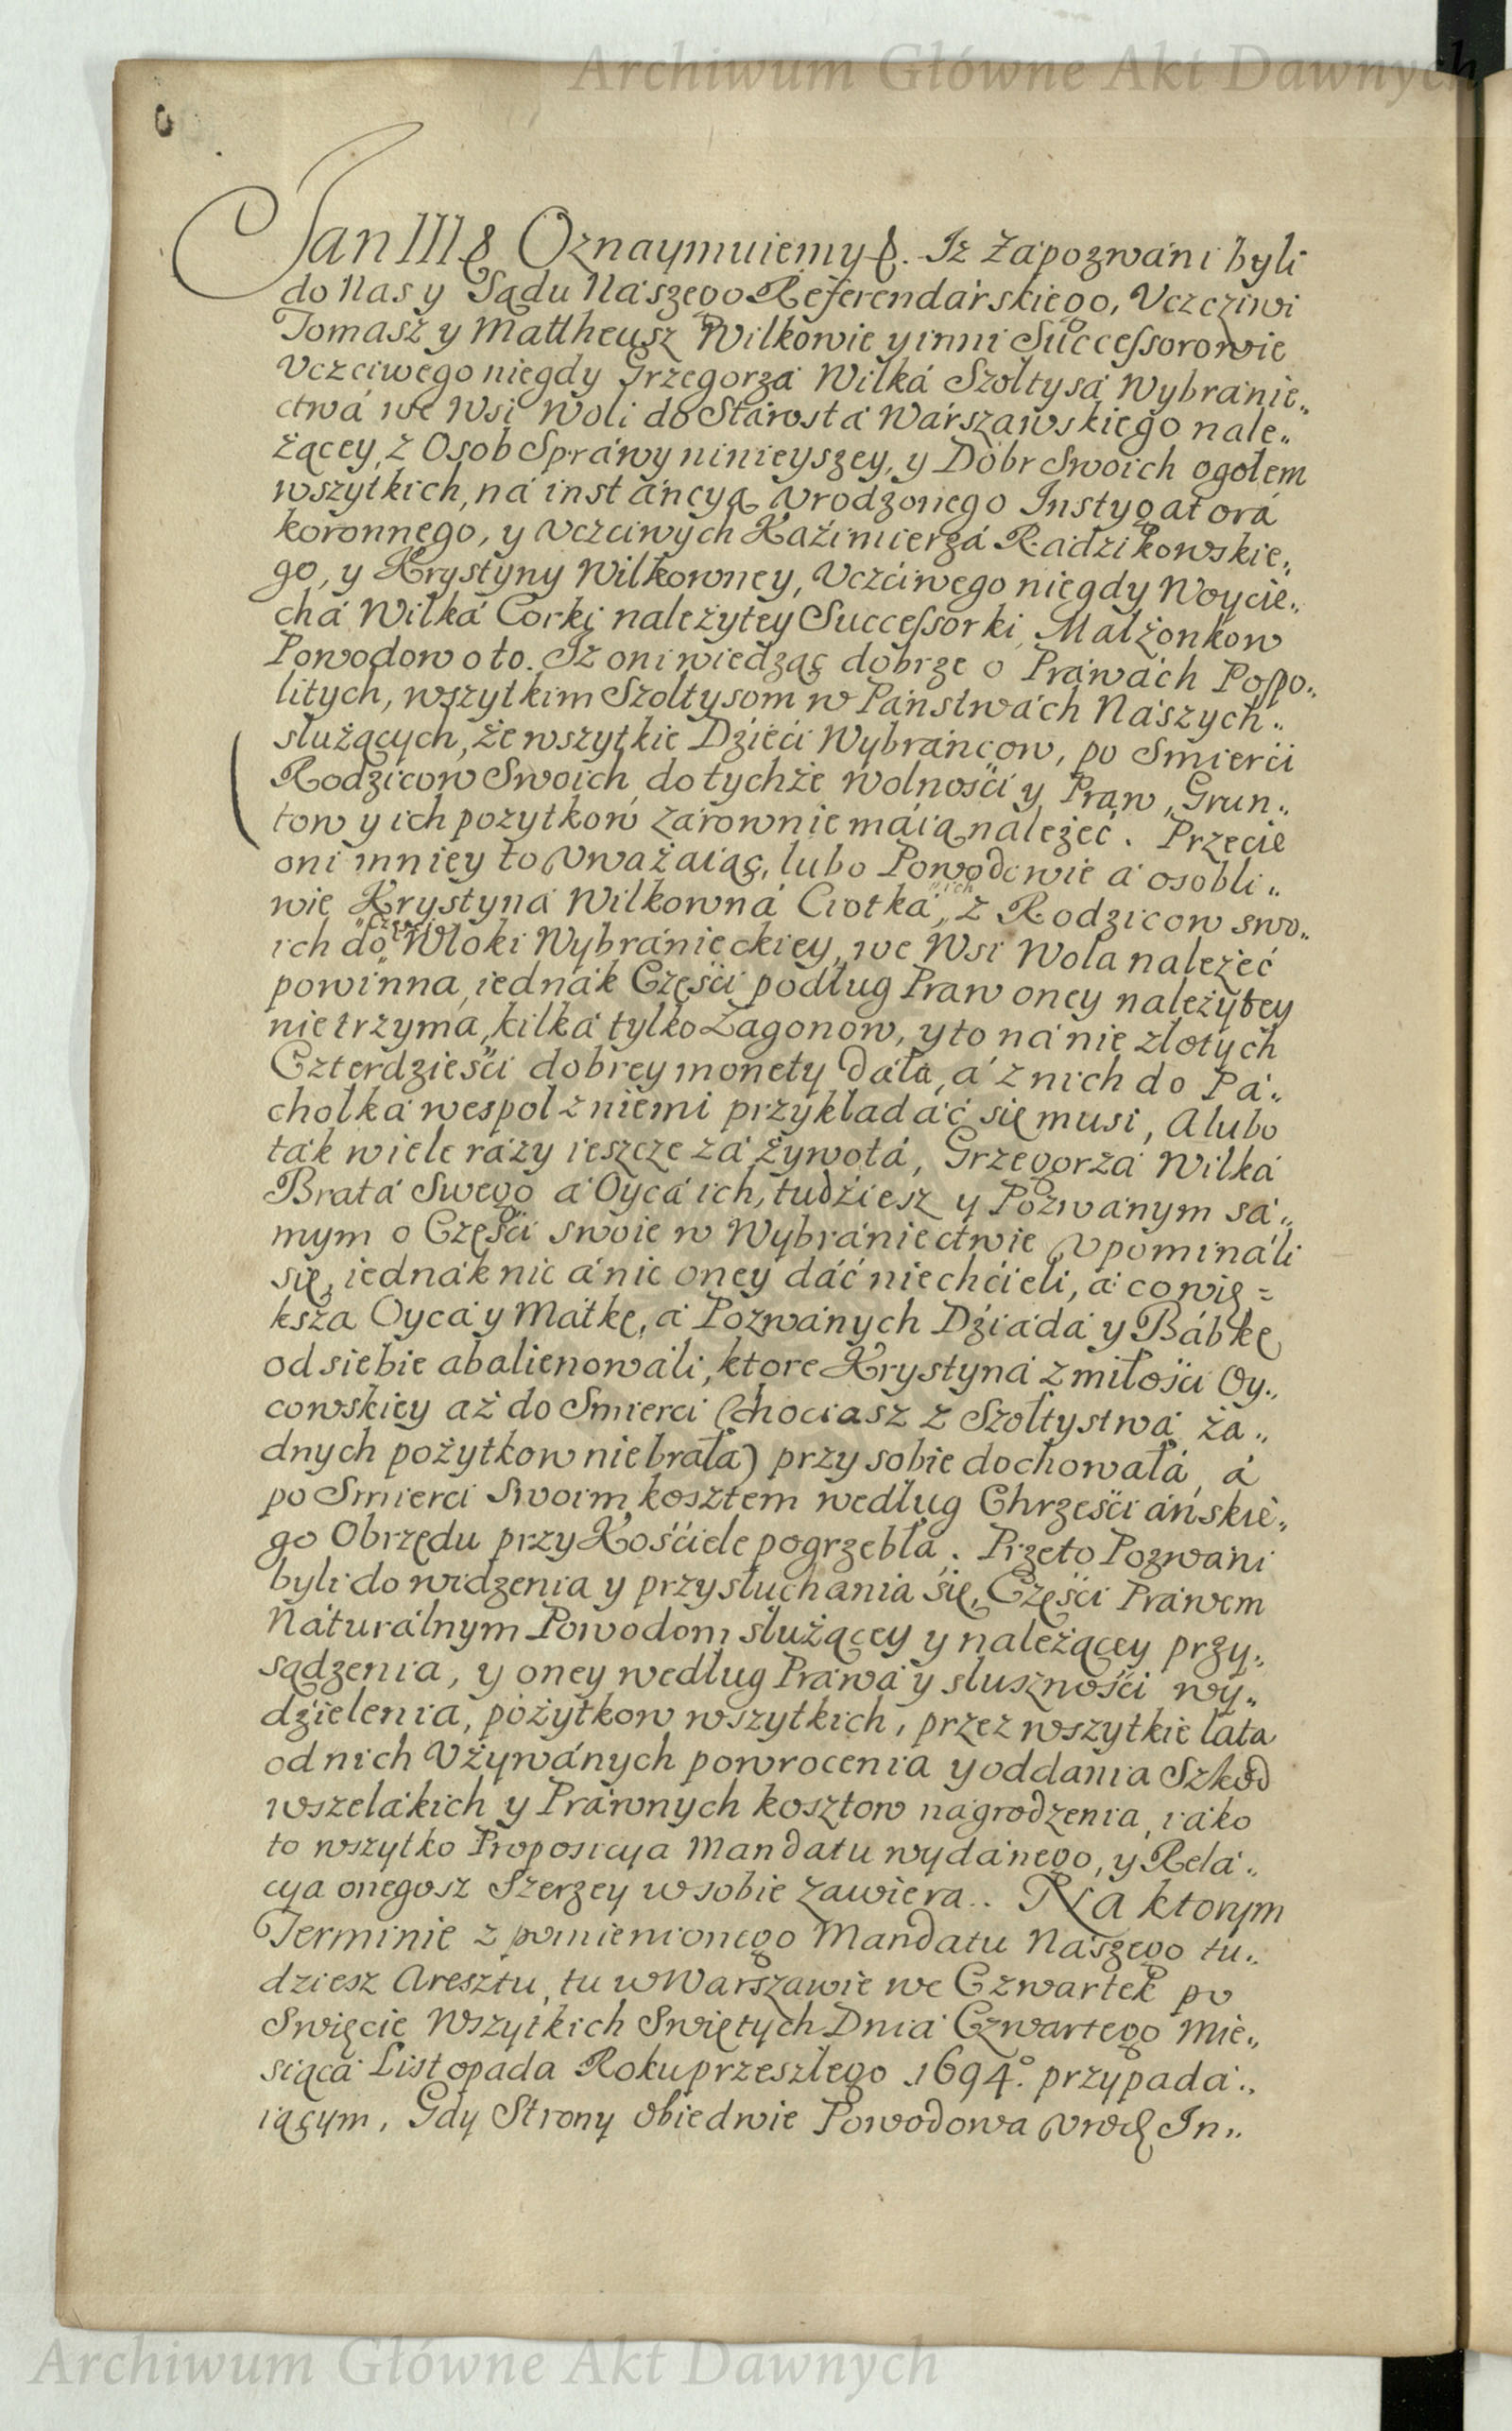 Archiwum Główne Akt Dawnych
Jan III & Oznaymuiemy &. Iż Zápozwáni byli
do Nas y Sądu Nászego Referendárskiego, Vczciwi
Tomasz y Mattheusz Wilkowie y inni Successorowie
Vczciwego niegdy Grzegorzá Wilká Szołtysá Wybránie„
ctwá we Wsi Woli do Stárostá Wárszáwskiego nale„
żącey, z Osob Spráwy ninieyszey, y Dobr Swoich ogołem
wszytkich, ná instáncyą Vrodzonego Instygatorá
koronnego, y Vczciwych Káźimierzá Rádzikowskie„
go, y Krystyny Wilkowney, Vczciwego niegdy Woycie„
chá Wilká Corki należytey Successorki, Małżonkow
Powodow o to. Iż oni wiedząc dobrze o Práwách Pospo„
litych, wszytkim Szołtysom w Páństwách Nászych„
służących, że wszytkie Dzieći Wybráńcow, po Smierći
Rodzicow Swoich, do tychże wolnośći y Praw, Grun„
tow y ich pozytkow zárownie máią należeć. Przecie
oni mniey to Vważaiąc, lubo Powodowie á osobli„
wie Krystyná Wilkowná Ciotká „ich„ z Rodzicow swo„
ich do „Częśći„ Włoki Wybránieckiey, we Wsi Wola należeć
powinna, iednák Częśći podług Praw oney należytey
nie trzyma, kilká tylko Zagonow, y to ná nie złotych
Czterdzieśći dobrey monety dałá, á z nich do Pá„
chołká wespoł z niemi przykładáć się musi, A lubo
ták wiele rázy ieszcze zá żywotá, Grzegorzá Wilká
Brátá Swego á Oycá ich, tudźiesz y Pozwánym sá„
mym o Częśći swoie w Wybrániectwie Vpomináli
się, iednák nic á nic oney dáć niechćieli, á co wię=
ksza Oycá y Mátkę, á Pozwánych Dźiádá y Bábkę
od siebie abalienowáli, ktore Krystyná z miłośći Oy„
cowskiey aż do Smierci (chociasz z Szołtystwá żá„
dnych pożytkow nie brałá) przy sobie dochowáłá, á
po Smierci Swoim kosztem według Chrześćiáńskie„
go Obrzędu przy Kośćiele pogrzebłá. Przeto Pozwáni
byli do widzenia y przysłuchania się, Częśći Práwem
Náturálnym Powodom służącey y należącey przy„
sądzenia, y oney według Práwá y słusznośći wy„
dźielenia, pożytkow wszytkich, przez wszytkie látá
od nich Vżywánych powrocenia y oddania Szkod
wszelákich y Práwnych kosztow nágrodzenia, iáko
to wszytko Proposicya Mandatu wydánego, y Relá„
cya onegosz Szerzey w sobie zawiera. Na ktorym
Terminie z pomienionego Mandatu Nászego tu„
dziesz Aresztu, tu w Warszawie we Czwartek po
Swięcie Wszytkich Swiętych Dniá Czwartego Mie„
siącá Listopada Roku przeszłego 1694º. przypadá„
iącym, Gdy Strony obiedwie Powodowa Vrodz In„
Archiwum Główne Akt Dawnych